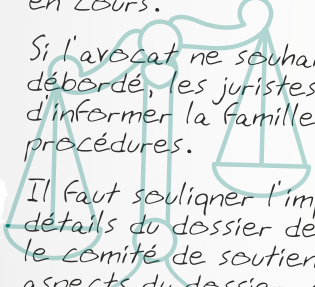 en cours.
Si l'avocat ne souhai
débordé, les juristes
d'informer la famille
procédures.
Il faut souligner l'im
détails du dossier de
le comité de soutien
aspects du dossier